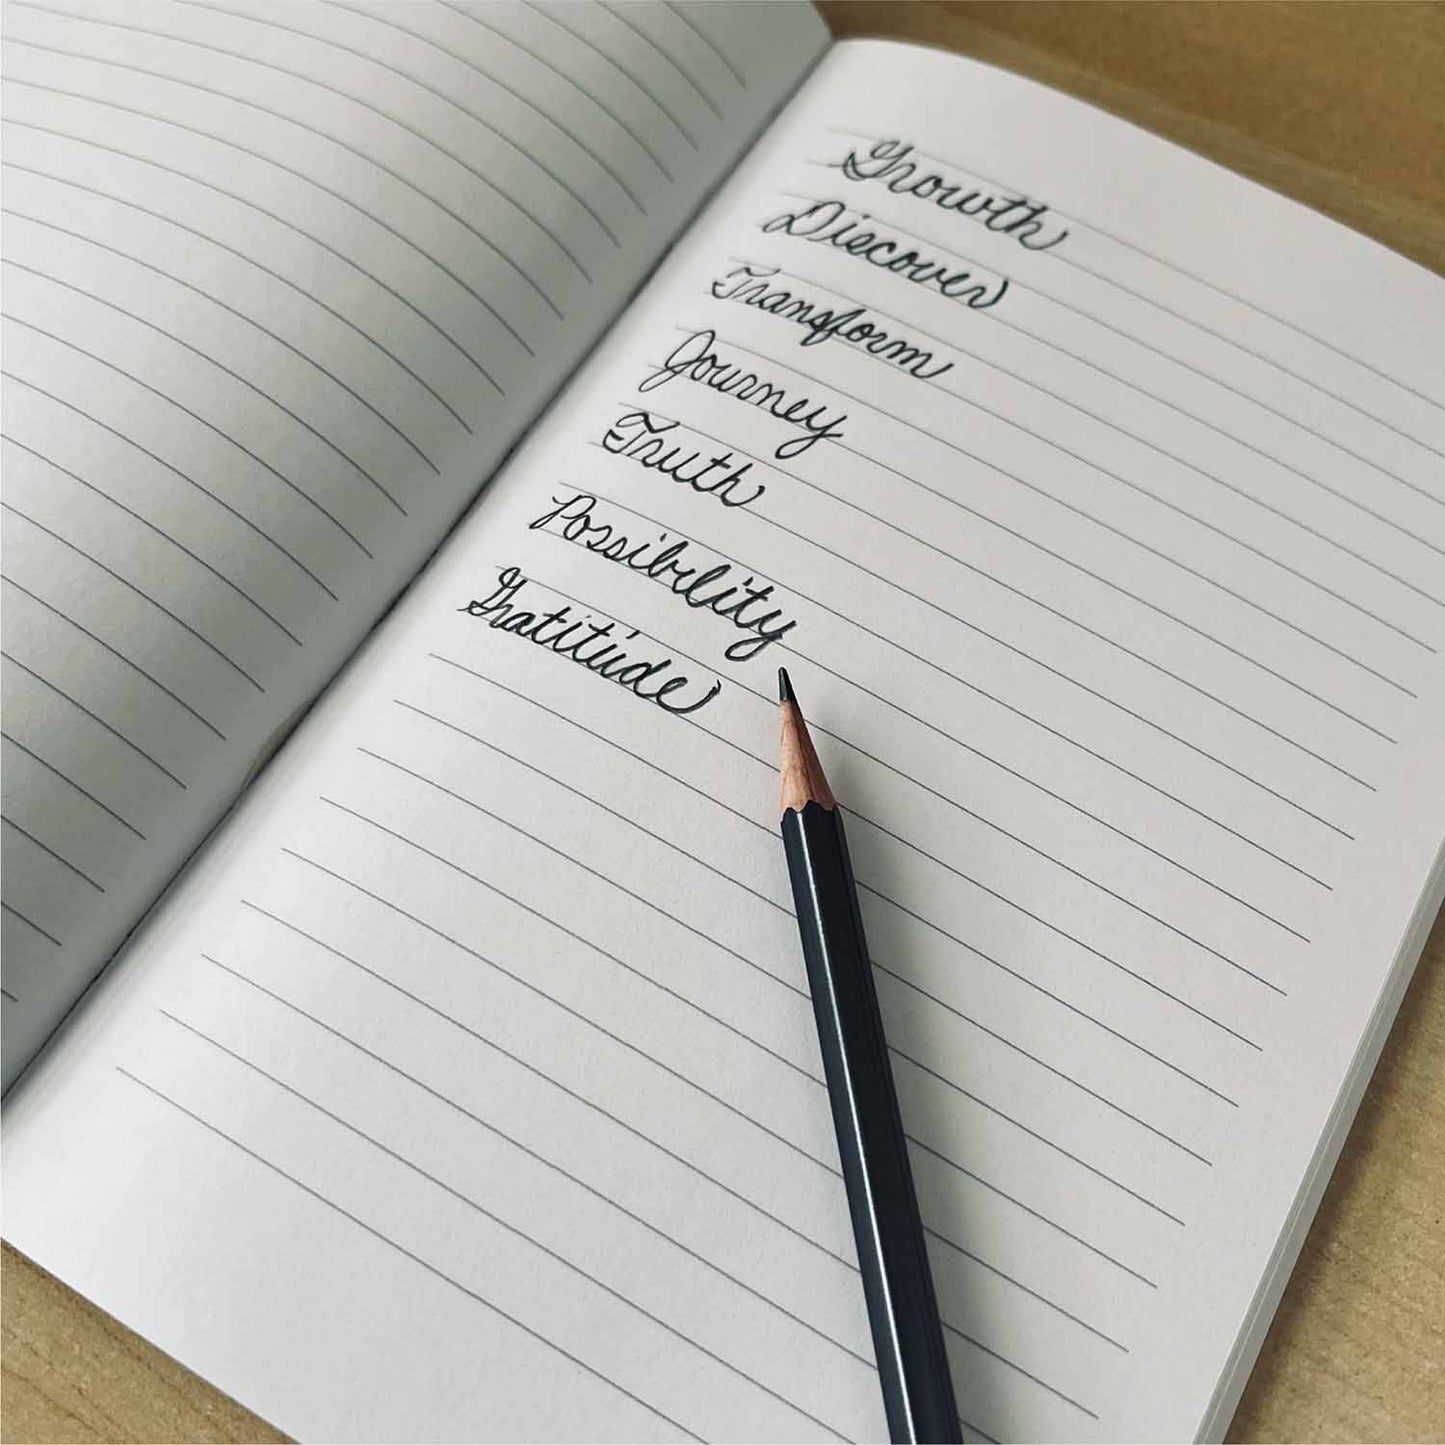 Growth
Discover
Transform
Journey
Truth
Possibility
Gratitude